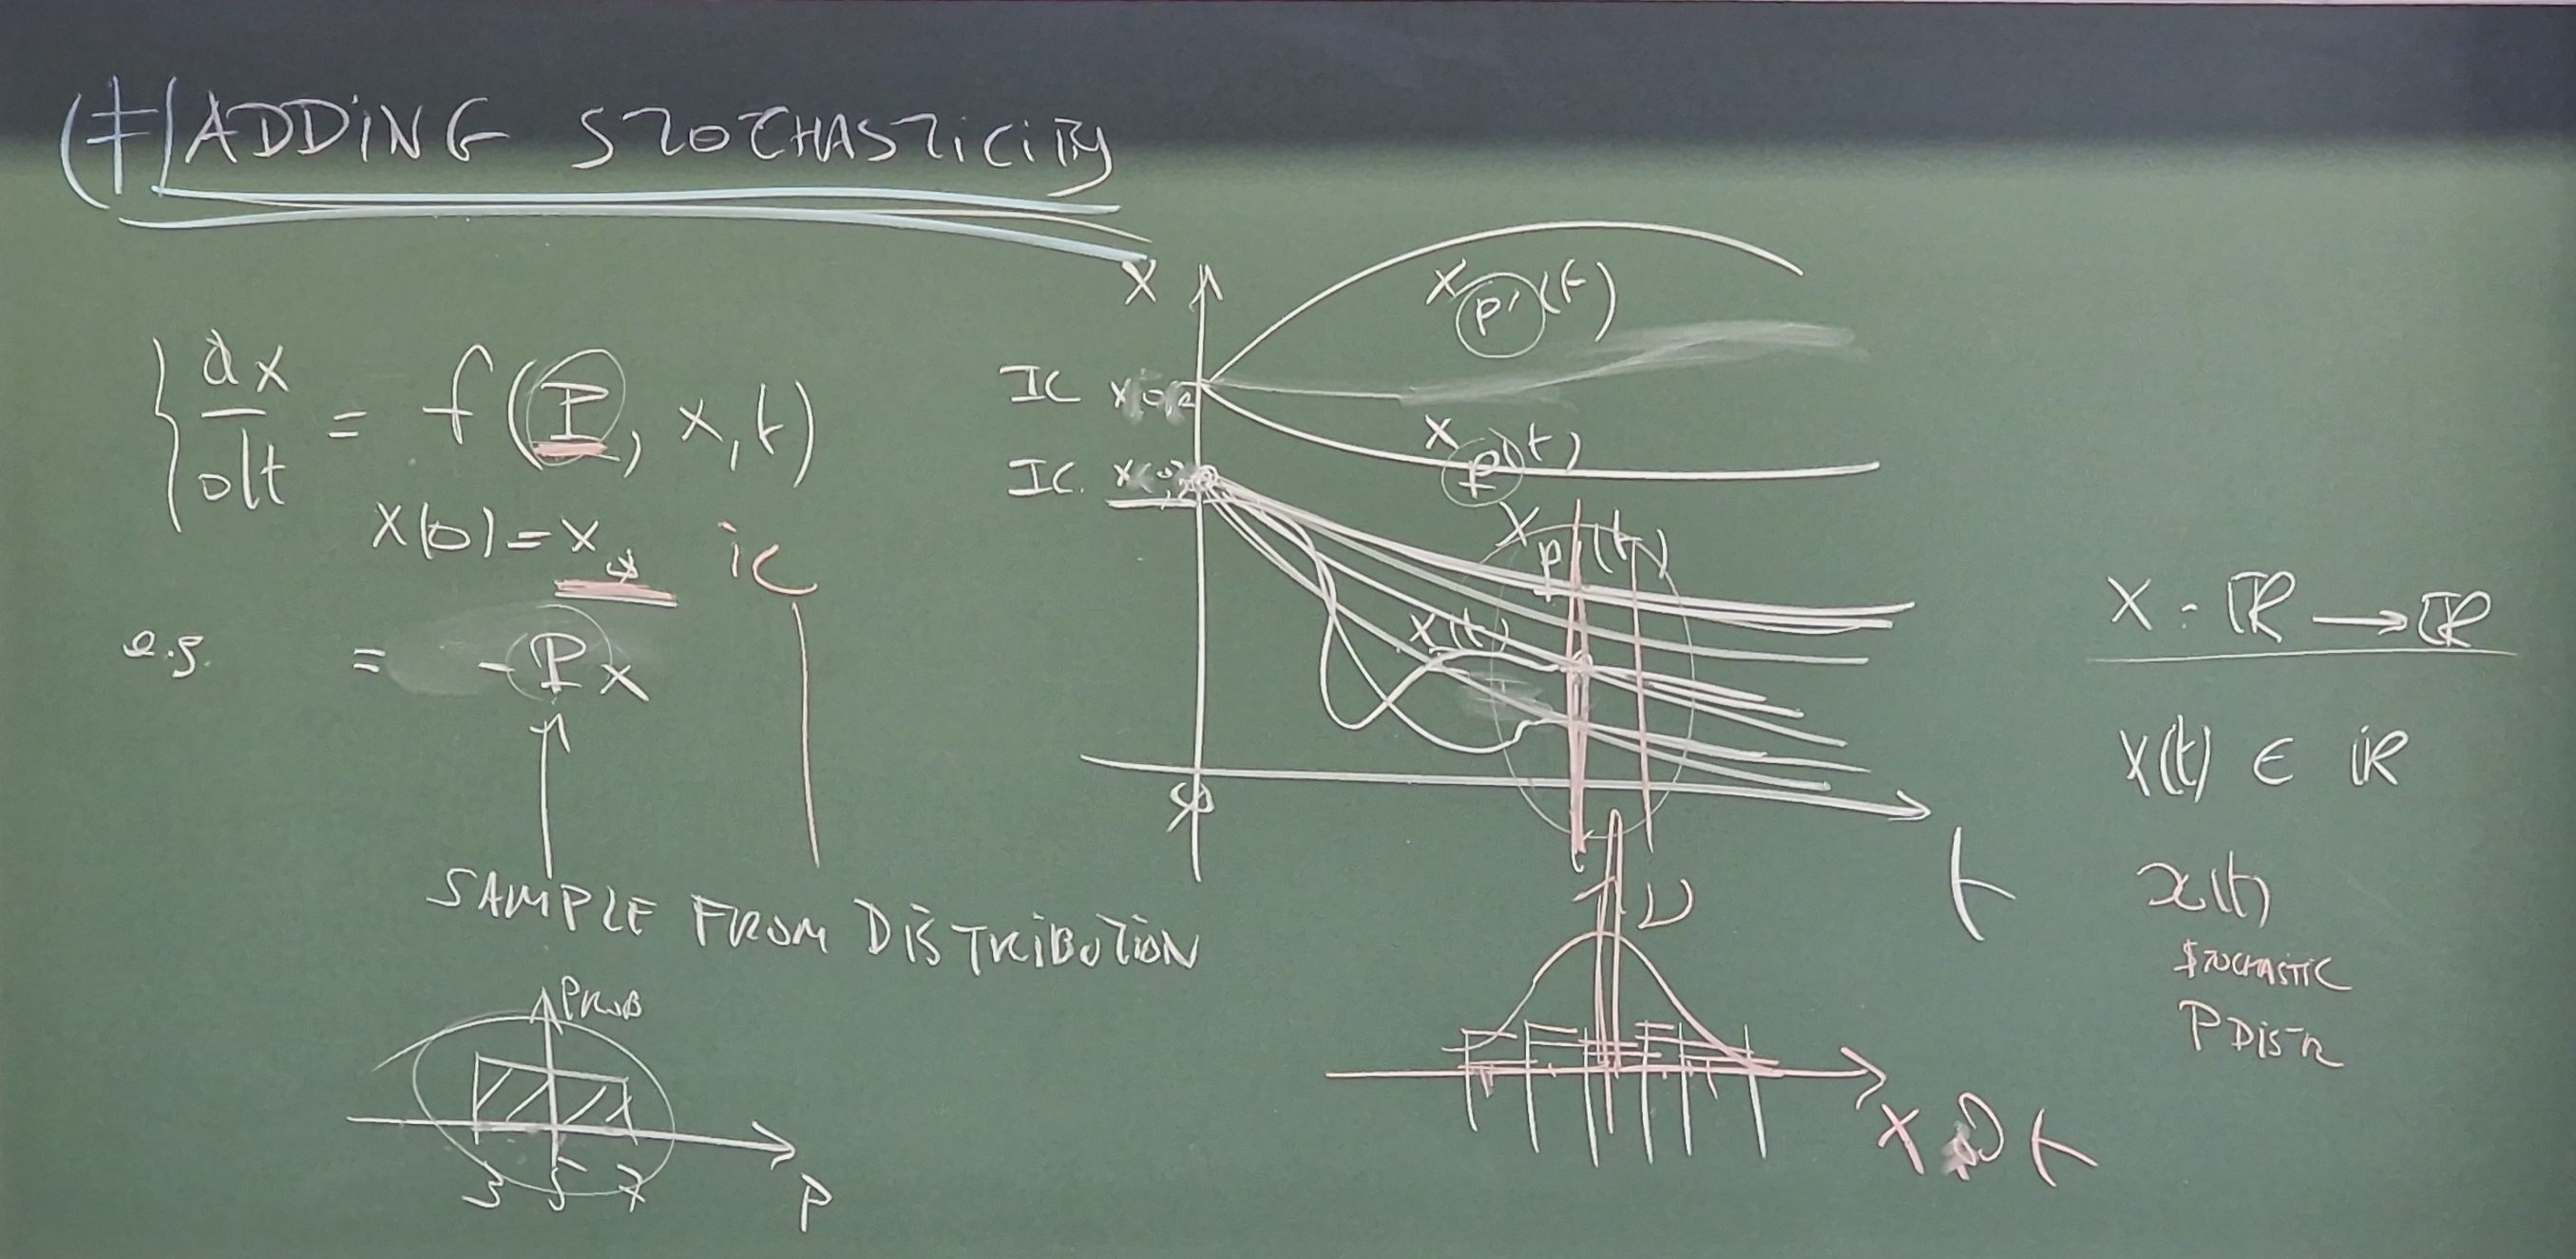 (‡) ADDING STOCHASTICITY
dx/dt = f(P, x, t)
x(0) = x₀ ic
e.g. = -Px
SAMPLE FROM DISTRIBUTION
PROB
3 5 7
P
X
x p'(t)
IC x(0)
x p(t)
IC. x(0)
x p(t)
x(t)
0
t
ν
x @ t
X : ℝ → ℝ
X(t) ∈ ℝ
x(t)
STOCHASTIC
P DISTR